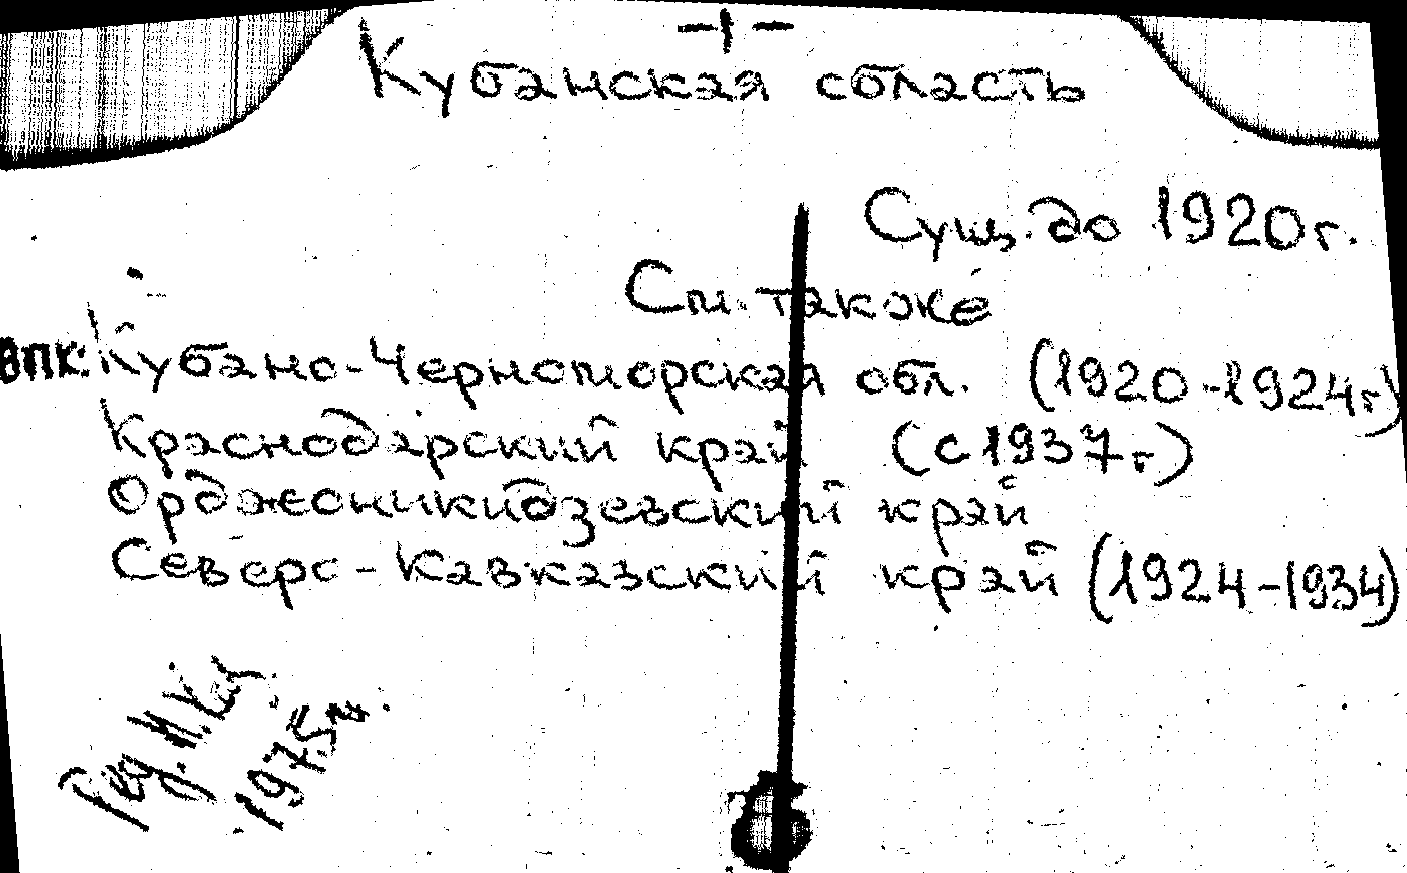 Кубанская область
Сущ. до 1920 г.
См. также
ВПК: Кубано-Черноморская обл. (1920-1924 г.)
Краснодарский край (с 1937 г.)
Орджоникидзевский край
Северо-Кавказский край (1924-1934)
1975